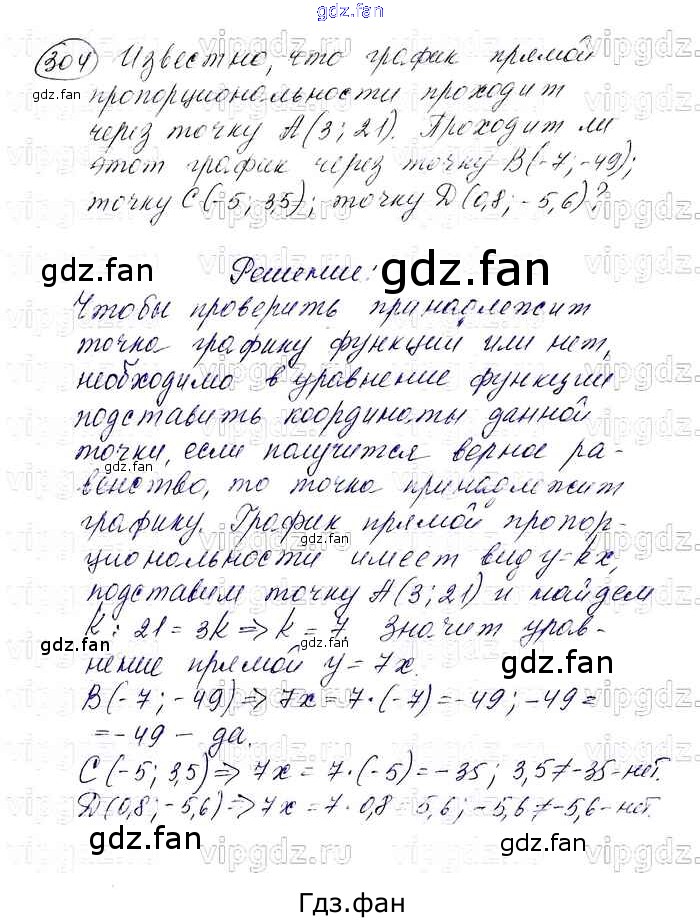 gdz.fan
304 Известно, что график прямой
gdz.fan пропорциональности проходит gdz.fan
через точку A(3; 21). Проходит ли
этот график через точку B(-7; -49);
точку C(-5; 3,5); точку D(0,8; -5,6)?
gdz.fan Решение: gdz.fan
Чтобы проверить принадлежит
точка графику функции или нет,
gdz.fan
необходимо в уравнение функции
подставить координаты данной
точки, если получится верное ра-
gdz.fan
венство, то точка принадлежит
графику. График прямой пропор-
gdz.fan
циональности имеет вид y=kx,
подставим точку A(3; 21) и найдем
k: 21=3k => k=7. Значит урав-
gdz.fan gdz.fan
нение прямой y=7x.
B(-7; -49) => 7x = 7·(-7) = -49; -49 =
= -49 - да.
C(-5; 3,5) => 7x = 7·(-5) = -35; 3,5≠-35-нет.
D(0,8; -5,6) => 7x = 7·0,8=5,6; -5,6≠-5,6-нет.
gdz.fan gdz.fan
Гдз.фан